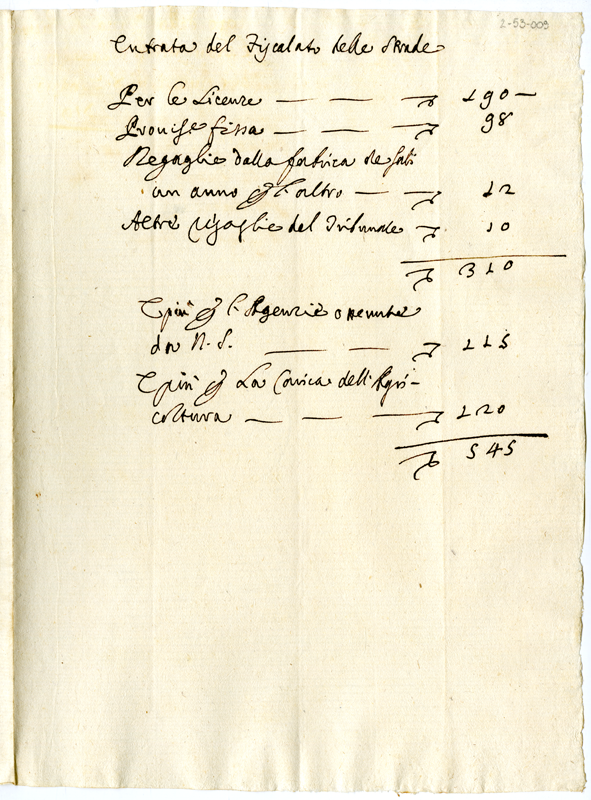 2-53-009
Entrata del Fiscalato delle Strade
Per le Licenze — — — ∇ 190 —
Provise fissa — — — ∇ 98
Regaglie dalla fabrica de
un anno p l'altro — — ∇ 12
Altre regaglie del Tribunale ∇ 10
∇ 310
E più p l'Agenzie ottenute
da N. S. — — ∇ 115
E più p La Carica dell'Agri-
coltura — — — ∇ 120
∇ 545